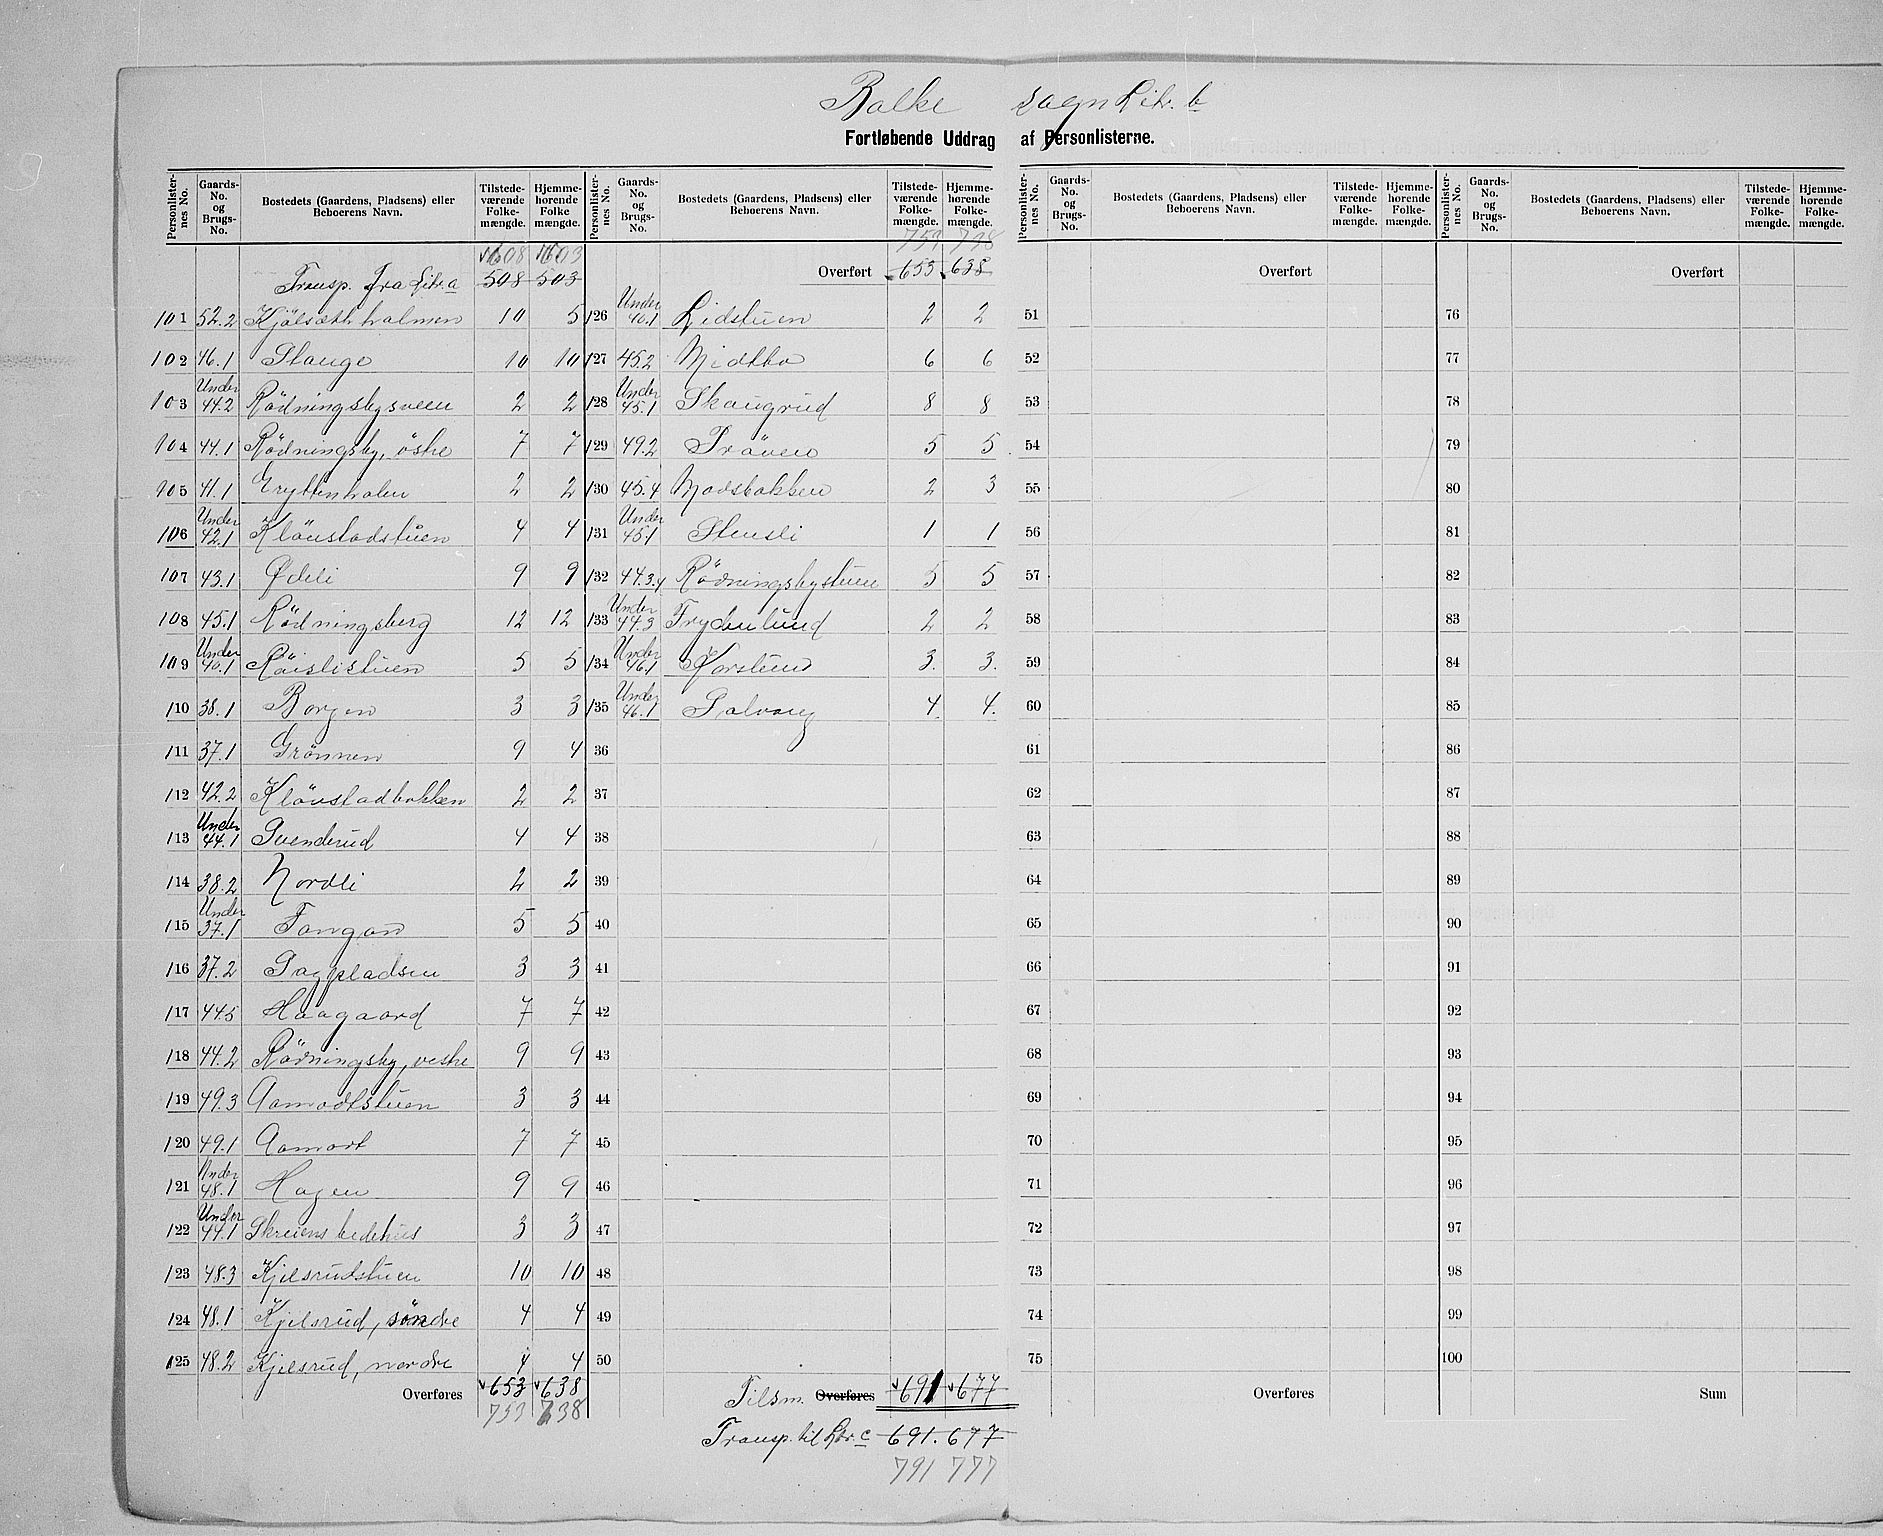 Balke sogn Litr. b
Fortløbende Uddrag af Personlisterne.
Personlister-nes No. | Gaards-No. og Brugs-No. | Bostedets (Gaardens, Pladsens) eller Beboerens Navn. | Tilstede-værende Folke-mængde. | Hjemme-hørende Folke mængde.
608 603
Transp. fra Litr. a 508 503
101 52.2 Kjölsæthholmen 10 5
102 46.1 Stange 10 10
103 Under 44.2 Rödningsbysveen 2 2
104 44.1 Rödningsby, östre 7 7
105 41.1 Gryttenholen 2 2
106 Under 42.1 Klövstadstuen 4 4
107 43.1 Ødeli 9 9
108 45.1 Rödningsberg 12 12
109 Under 40.1 Röislistuen 5 5
110 38.1 Borgen 3 3
111 37.1 Grönnen 9 4
112 42.2 Klövstadbakken 2 2
113 Under 44.1 Svenderud 4 4
114 38.2 Nordli 2 2
115 Under 37.1 Tangan 5 5
116 37.2 Sagpladsen 3 3
117 44.5 Haagaard 7 7
118 44.2 Rödningsby, vestre 9 9
119 49.3 Aamodtstuen 3 3
120 49.1 Aamodt 7 7
121 Under 48.1 Hagen 9 9
122 Under 44.1 Skreiens bedehus 3 3
123 48.3 Kjelsrudstuen 10 10
124 48.1 Kjelsrud, söndre 4 4
125 48.2 Kjelsrud, nordre 4 4
Overføres 653 638
753 738
Personlister-nes No. | Gaards-No. og Brugs-No. | Bostedets (Gaardens, Pladsens) eller Beboerens Navn. | Tilstede-værende Folke-mængde. | Hjemme-hørende Folke-mængde.
753 738
Overført 653 638
126 Under 40.1 Lidstuen 2 2
127 45.2 Midtbo 6 6
128 Under 45.1 Skaugrud 8 8
129 49.2 Pröven 5 5
130 45.4 Madsbakken 2 3
131 Under 45.1 Stensli 1 1
132 44.3.4 Rödningsbystuen 5 5
133 Under 44.3 Frydenlund 2 2
134 Under 46.1 3. 3.
135 Under 46.1 Solvang 4. 4.
36
37
38
39
40
41
42
43
44
45
46
47
48
49
50
Tilsm. Overføres 691 677
Transp. til Litr c 691. 677
791 777
Personlister-nes No. | Gaards-No. og Brugs-No. | Bostedets (Gaardens, Pladsens) eller Beboerens Navn. | Tilstede-værende Folke-mængde. | Hjemme-hørende Folke-mængde.
Overført
51
52
53
54
55
56
57
58
59
60
61
62
63
64
65
66
67
68
69
70
71
72
73
74
75
Overføres
Personlister-nes No. | Gaards-No. og Brugs-No. | Bostedets (Gaardens, Pladsens) eller Beboerens Navn. | Tilstede-værende Folke-mængde. | Hjemme-hørende Folke-mængde.
Overført
76
77
78
79
80
81
82
83
84
85
86
87
88
89
90
91
92
93
94
95
96
97
98
99
100
Sum